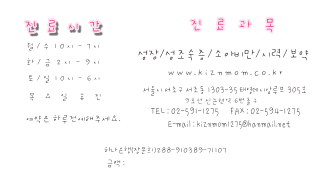 진 료 시 간
월 / 수 1 0 시 - 7 시
화 / 금 2 시 - 9 시
토 / 일 1 0 시 - 6 시
목 요 일 휴 진
예약은 하루전에해주세요.
진 료 과 목
성장/성조숙증/소아비만/시력/보약
www.kiznmom.co.kr
서울시서초구 서초동 1303-35
9호선 신논현역 6번출구
TEL:02-591-1275 FAX:02-594-1275
E-mail:kiznmom1275@hanmail.net
288-910389-71107
금액: